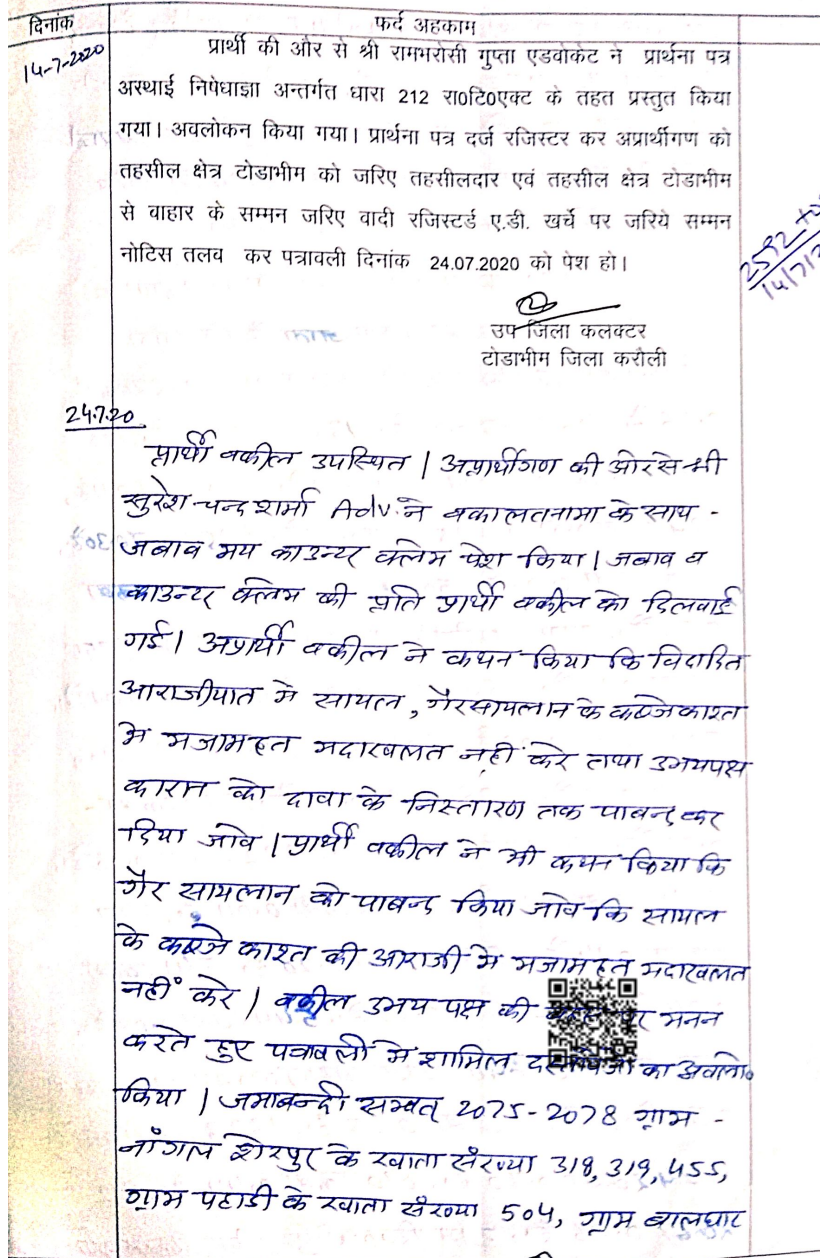 दिनांक
फर्द अहकाम
14-7-2020
प्रार्थी की और से श्री रामभरोसी गुप्ता एडवोकेट ने प्रार्थना पत्र
अस्थाई निषेधाज्ञा अन्तर्गत धारा 212 रा0टि0एक्ट के तहत प्रस्तुत किया
गया। अवलोकन किया गया। प्रार्थना पत्र दर्ज रजिस्टर कर अप्रार्थीगण को
तहसील क्षेत्र टोडाभीम को जरिए तहसीलदार एवं तहसील क्षेत्र टोडाभीम
से वाहार के सम्मन जरिए वादी रजिस्टर्ड ए.डी. खर्चे पर जरिये सम्मन
नोटिस तलव कर पत्रावली दिनांक 24.07.2020 को पेश हो।
उप जिला कलक्टर
टोडाभीम जिला करौली
24.7.20
प्रार्थी वकील उपस्थित। अप्रार्थीगण की ओर से श्री
सुरेश चन्द शर्मा Adv. ने वकालतनामा के साथ -
जबाव मय काउन्टर क्लेम पेश किया। जबाव व
काउन्टर क्लेम की प्रति प्रार्थी वकील को दिलवाई
गई। अप्रार्थी वकील ने कथन किया कि विवादित
आराजीयात मे सायल, गैरसायलान के कब्जे काश्त
मे मजामहत मदाखलत नही करे तथा उभयपक्ष
कारान को दावा के निस्तारण तक पाबन्द कर
दिया जावे। प्रार्थी वकील ने भी कथन किया कि
गैर सायलान को पाबन्द किया जावे कि सायल
के कब्जे काश्त की आराजी मे मजामहत मदाखलत
नहीं करे। वकील उभय पक्ष की पर मनन
करते हुए पत्रावली मे शामिल दस्तावेजो का अवलो०
किया। जमाबन्दी सम्वत् 2075-2078 ग्राम -
नाँगल शेरपुर के खाता संख्या 318, 319, 455,
ग्राम पहाडी के खाता संख्या 504, ग्राम बालघाट